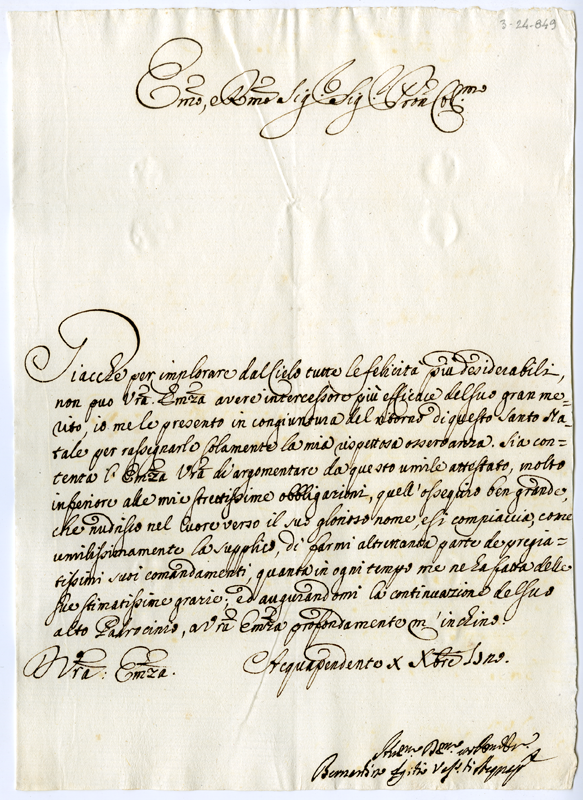 3-24-849
Emo, e Rmo Sig.r Sig.r Pron Col.mo
Giacche per implorare dal Cielo tutte le felicità più desiderabili,
non può Vrã Emza avere intercessore più efficace del suo gran me=
rito, io me le presento in congiuntura del ritorno di questo Santo Na=
tale per rassegnarle solamente la mia rispettosa osservanza. Sia con=
tenta l'Emza Vrã di argomentare da questo umile attestato, molto
inferiore alle mie strettissime obbligazioni, quell'ossequio ben grande,
che nudrisco nel Cuore verso il suo glorioso nome, e si compiaccia, come
umilissimamente la supplico, di farmi altrettanta parte de pregia=
tissimi suoi comandamenti, quanta in ogni tempo me ne ha fatta delle
sue stimatissime grazie; ed augurandomi la continuazione del suo
alto Padrocinio, a Vrã Emza profondamente m'inchino.
Di Vrã: Emza. Acquapendente X Xbre